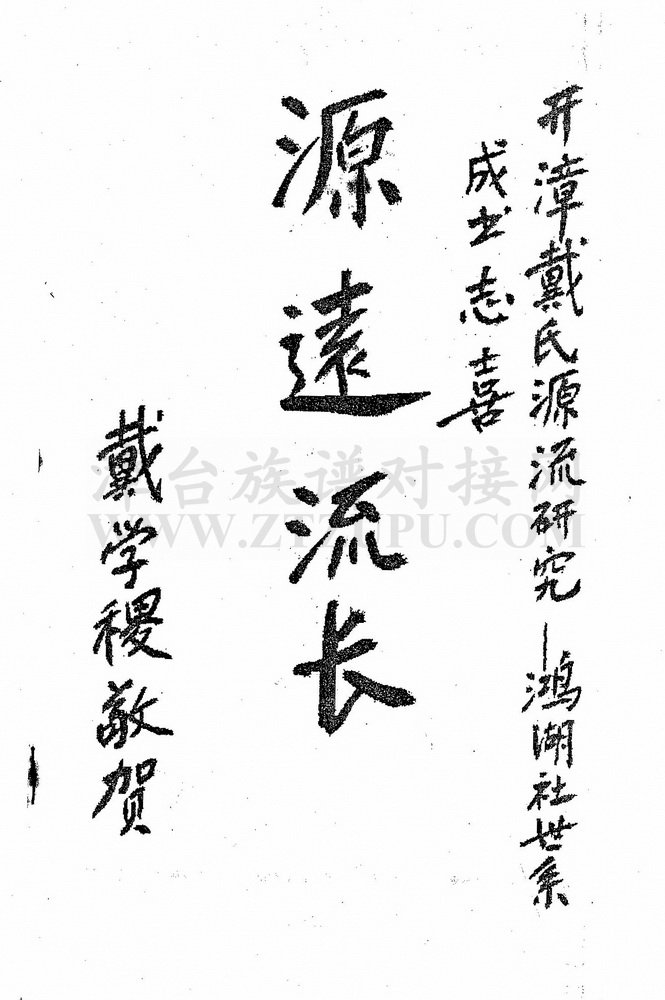 开漳戴氏源流研究—鸿湖社世系
成书志喜
源遠流长
戴学稷敬贺
台族谱对接
WWW.ZTZUPU.COM